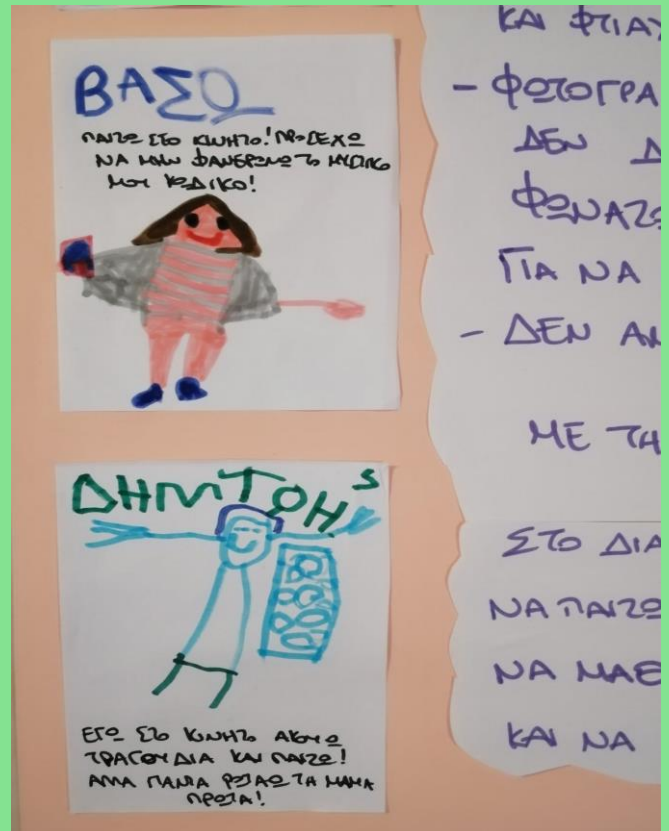 ΒΑΣΩ
ΠΑΙΖΩ ΣΤΟ ΚΙΝΗΤΟ! ΠΡΟΣΕΧΩ
ΝΑ ΜΗΝ ΦΑΝΕΡΩΝΩ ΤΟ ΜΥΣΤΙΚΟ
ΜΟΥ ΚΩΔΙΚΟ!
ΔΗΜΤΘΗS
ΕΓΩ ΣΤΟ ΚΙΝΗΤΟ ΑΚΟΥΩ
ΤΡΑΓΟΥΔΙΑ ΚΑΙ ΠΑΙΖΩ!
ΑΛΛΑ ΠΑΝΤΑ ΡΩΤΑΩ ΤΗ ΜΑΜΑ
ΠΡΩΤΑ!
ΚΑΙ ΦΤΙΑΧ
- ΦΩΤΟΓΡΑ
ΔΕΝ Δ
ΦΩΝΑΖΩ
ΓΙΑ ΝΑ
- ΔΕΝ ΑΝ
ΜΕ ΤΗ
ΣΤΟ ΔΙΑ
ΝΑ ΠΑΙΖΩ
ΝΑ ΜΑΘ
ΚΑΙ ΝΑ